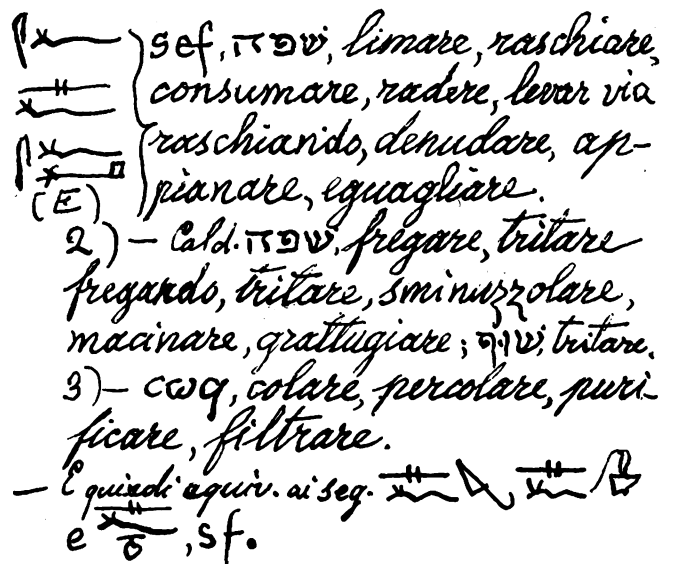 sef, שפה, limare, raschiare,
consumare, radere, levar via
raschiando, denudare, ap-
pianare, eguagliare.
(E)
2) – Cald. שפה, fregare, tritare
fregando, tritare, sminuzzolare,
macinare, grattugiare; שוף, tritare.
3) – cωq, colare, percolare, puri-
ficare, filtrare.
– E quindi equiv. ai seg.
e , sf.